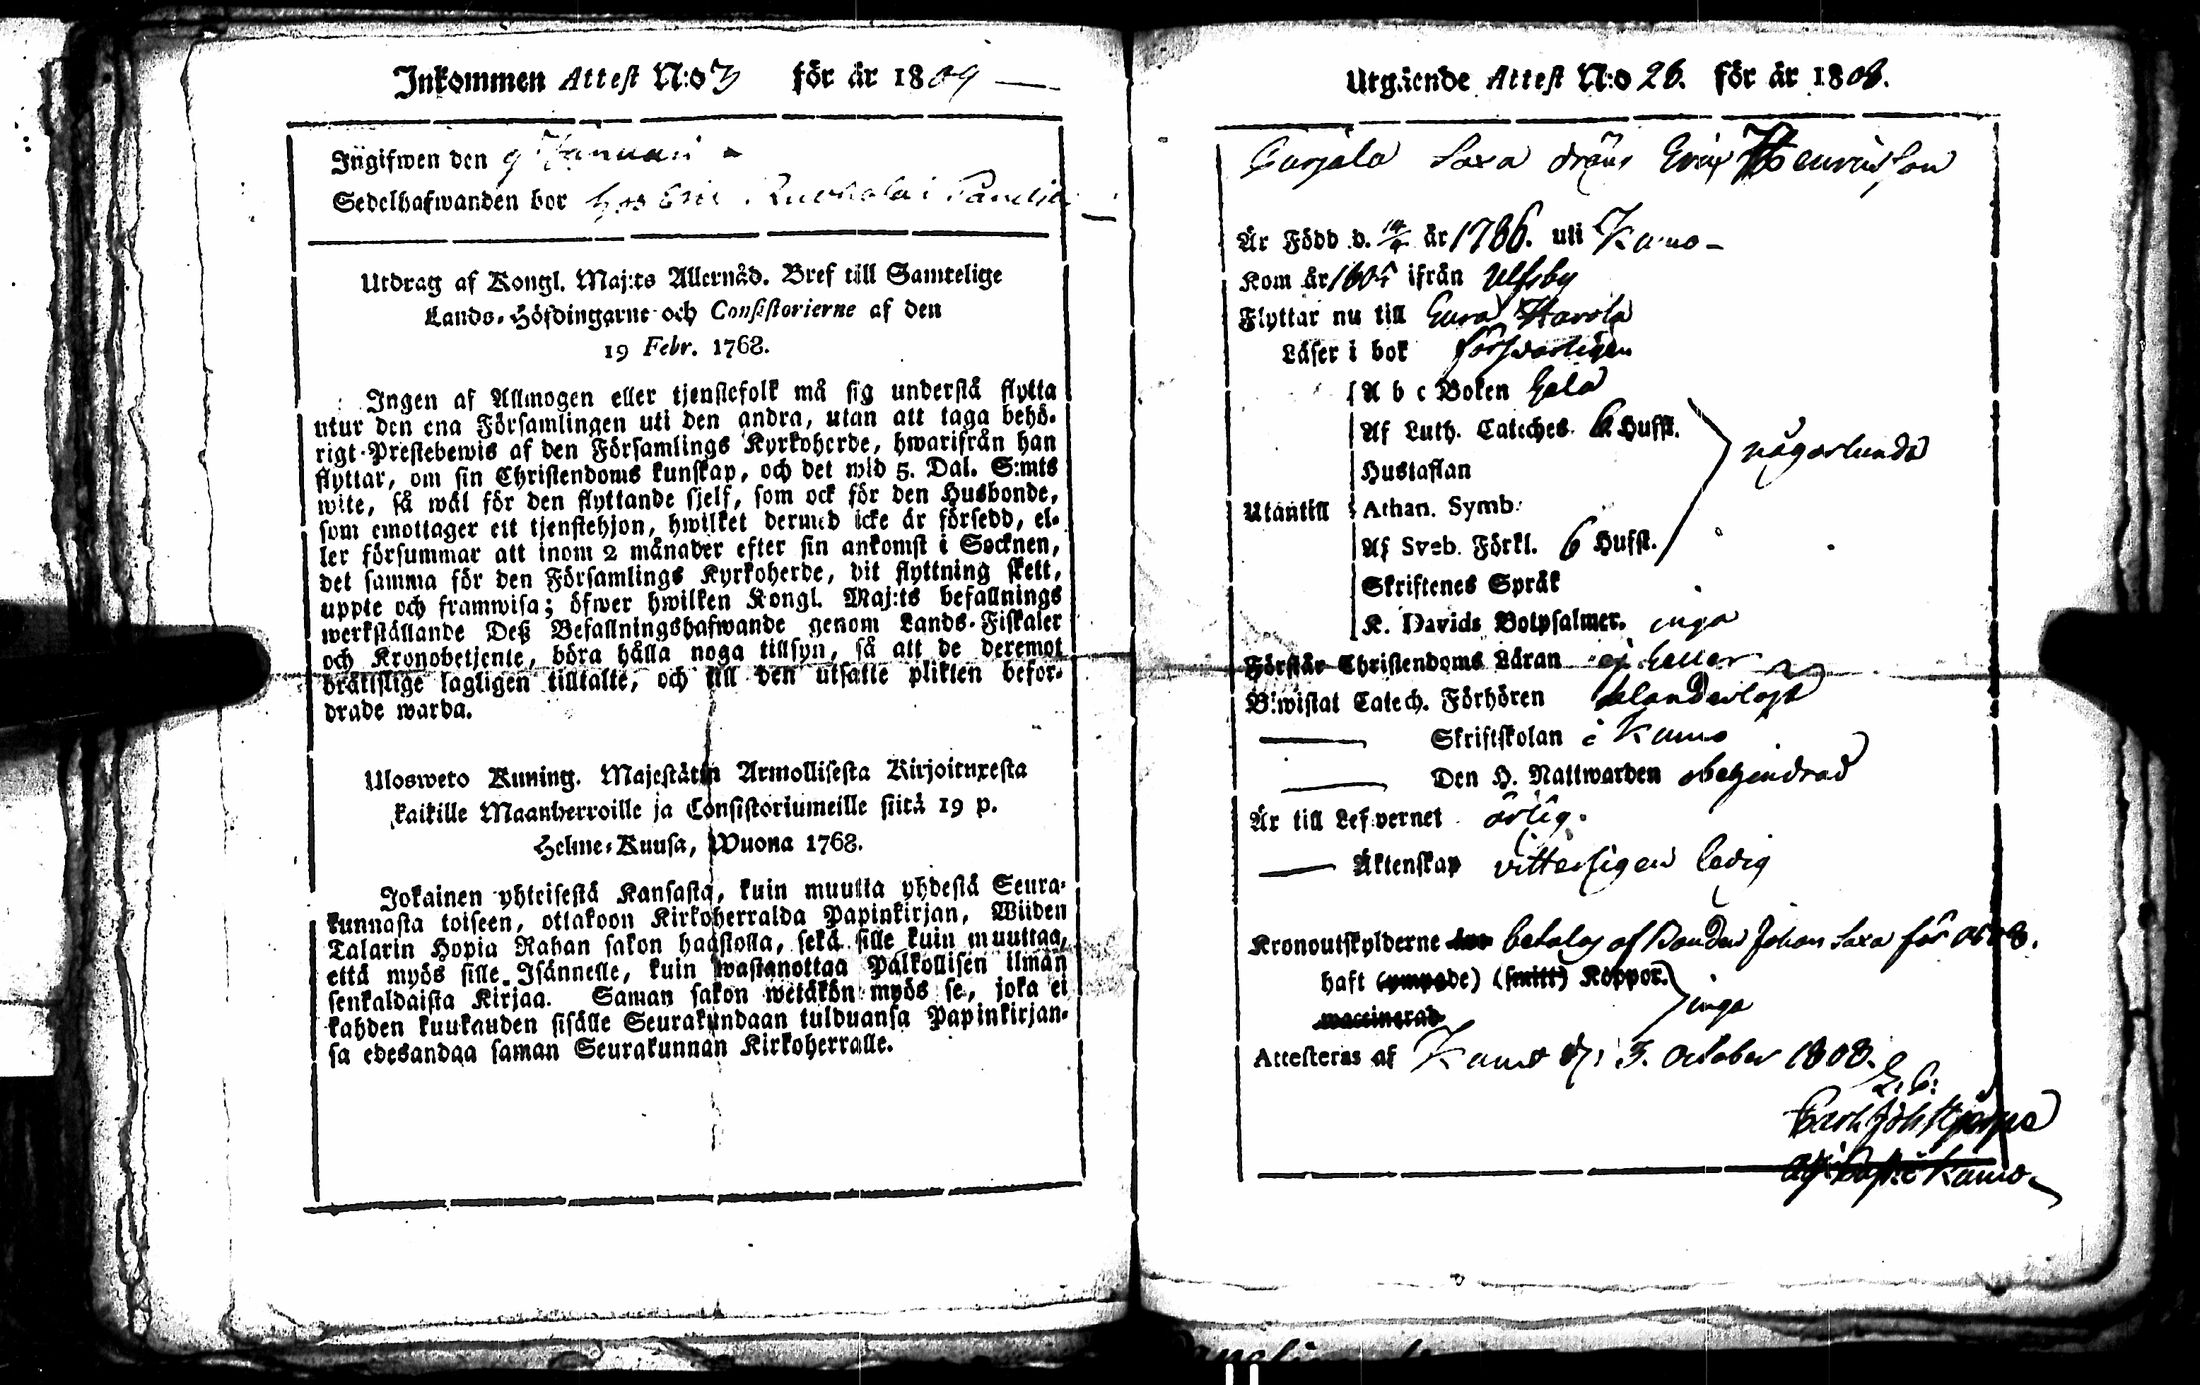 Inkommen Attest N:o 3 för år 1809
Ingifwen den 9 Januari
Sedelhafwanden bor hos Eric i
Utdrag af Kongl. Maj:ts Allernåd. Bref till Samtelige
Lands-Höfdingarne och Consistorierne af den
19 Febr. 1768.
Ingen af Allmogen eller tjenstefolk må sig understå flytta
utur den ena Församlingen uti den andra, utan att taga behö-
rigt Prestebewis af den Församlings Kyrkoherde, hwarifrån han
flyttar, om sin Christendoms kunskap, och det wid 5. Dal. S:mts
wite, så wäl för den flyttande sjelf, som ock för den Husbonde,
som emottager ett tjenstehjon, hwilket dermed icke är försedd, el-
ler försummar att inom 2 månader efter sin ankomst i Socknen,
det samma för den Församlings Kyrkoherde, dit flyttning skett,
uppte och framwisa; öfwer hwilken Kongl. Maj:ts befallnings
werkställande Deß Befallningshafwande genom Lands-Fiskaler
och Kronobetjente, böra hålla noga tillsyn, så att de deremot
bråttslige lagligen tilltalte, och till den utsatte plikten befor-
drade warda.
Ulosweto Kuning. Majestätin Armollisesta Kirjoituxesta
kaikille Maanherroille ja Consistoriumeille siitä 19 p.
Helme-Kuusa, Wuona 1768.
Jokainen yhteisestä Kansasta, kuin muutta yhdestä Seura-
kunnasta toiseen, ottakoon Kirkoherralda Papinkirjan, Wiiden
Talarin Hopia Rahan sakon haastolla, sekä sille kuin muuttaa,
että myös sille Isännelle, kuin wastanottaa Palkollisen ilman
senkaldaista Kirjaa. Saman sakon wetäkön myös se, joka ei
kahden kuukauden sisälle Seurakundaan tulduansa Papinkirjan-
sa edesandaa saman Seurakunnan Kirkoherralle.
Utgående Attest N:o 26. för år 1808.
Saxa dräng Eric Henricsson
Är Född d. år 1786. uti Kumo
Kom år 1805 ifrån Ulfsby
Flyttar nu till Eura Harola
Läser i bok försvarligen
A b c Boken hela
Af Luth. Catéches. 6 Hufst.
Hustaflan
någorlunda
Utantill
Athan. Symb.
Af Sveb. Förkl. 6 Hufst.
Skriftenes Språk
K. Davids Botpsalmer. inga
Förstår Christendoms Läran ej heller
B:wistat Catech. Förhören klanderlöst
Skriftskolan i Kumo
Den H. Nattwarden obehindrad
Är till Lefwernet ärlig.
Äktenskap vitterligen ledig
Kronoutskylderne betalas af Bonden Johan Saxa för 1808.
haft (ympade) (smitt) Koppor.
waccinerad
inga
Attesteras af Kumo d. 3. October 1808.